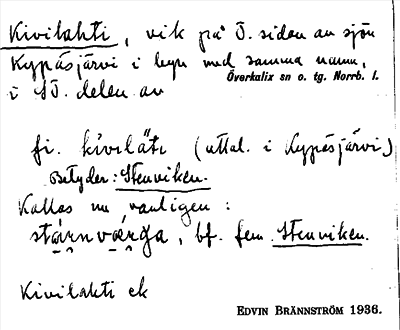 Kivilahti, vik på Ö. sidan av sjön
Kypäsjärvi i byn med samma namn,
Överkalix sn o. tg. Norrb. l.
i SÖ. delen av
fi. kiviläti (uttal. i Kypäsjärvi)
Betyder: Stenviken.
Kallas nu vanligen:
stärnvärga, bf. fem. Stenviken.
Kivilahti ek
EDVIN BRÄNNSTRÖM 1936.